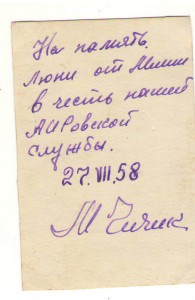 На память
Люни от Миши
в честь нашей
АИРовской
службы.
27.VIII.58
М Чичик